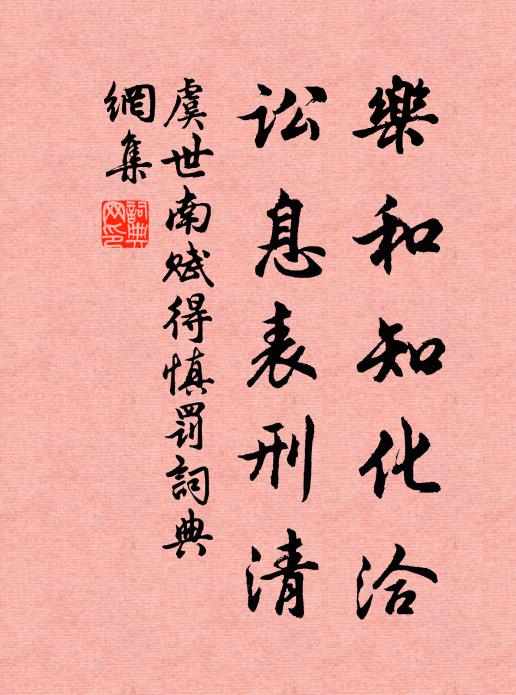 樂和知化洽
訟息表刑清
虞世南賦得慎罰詞典
網集
詞典網印